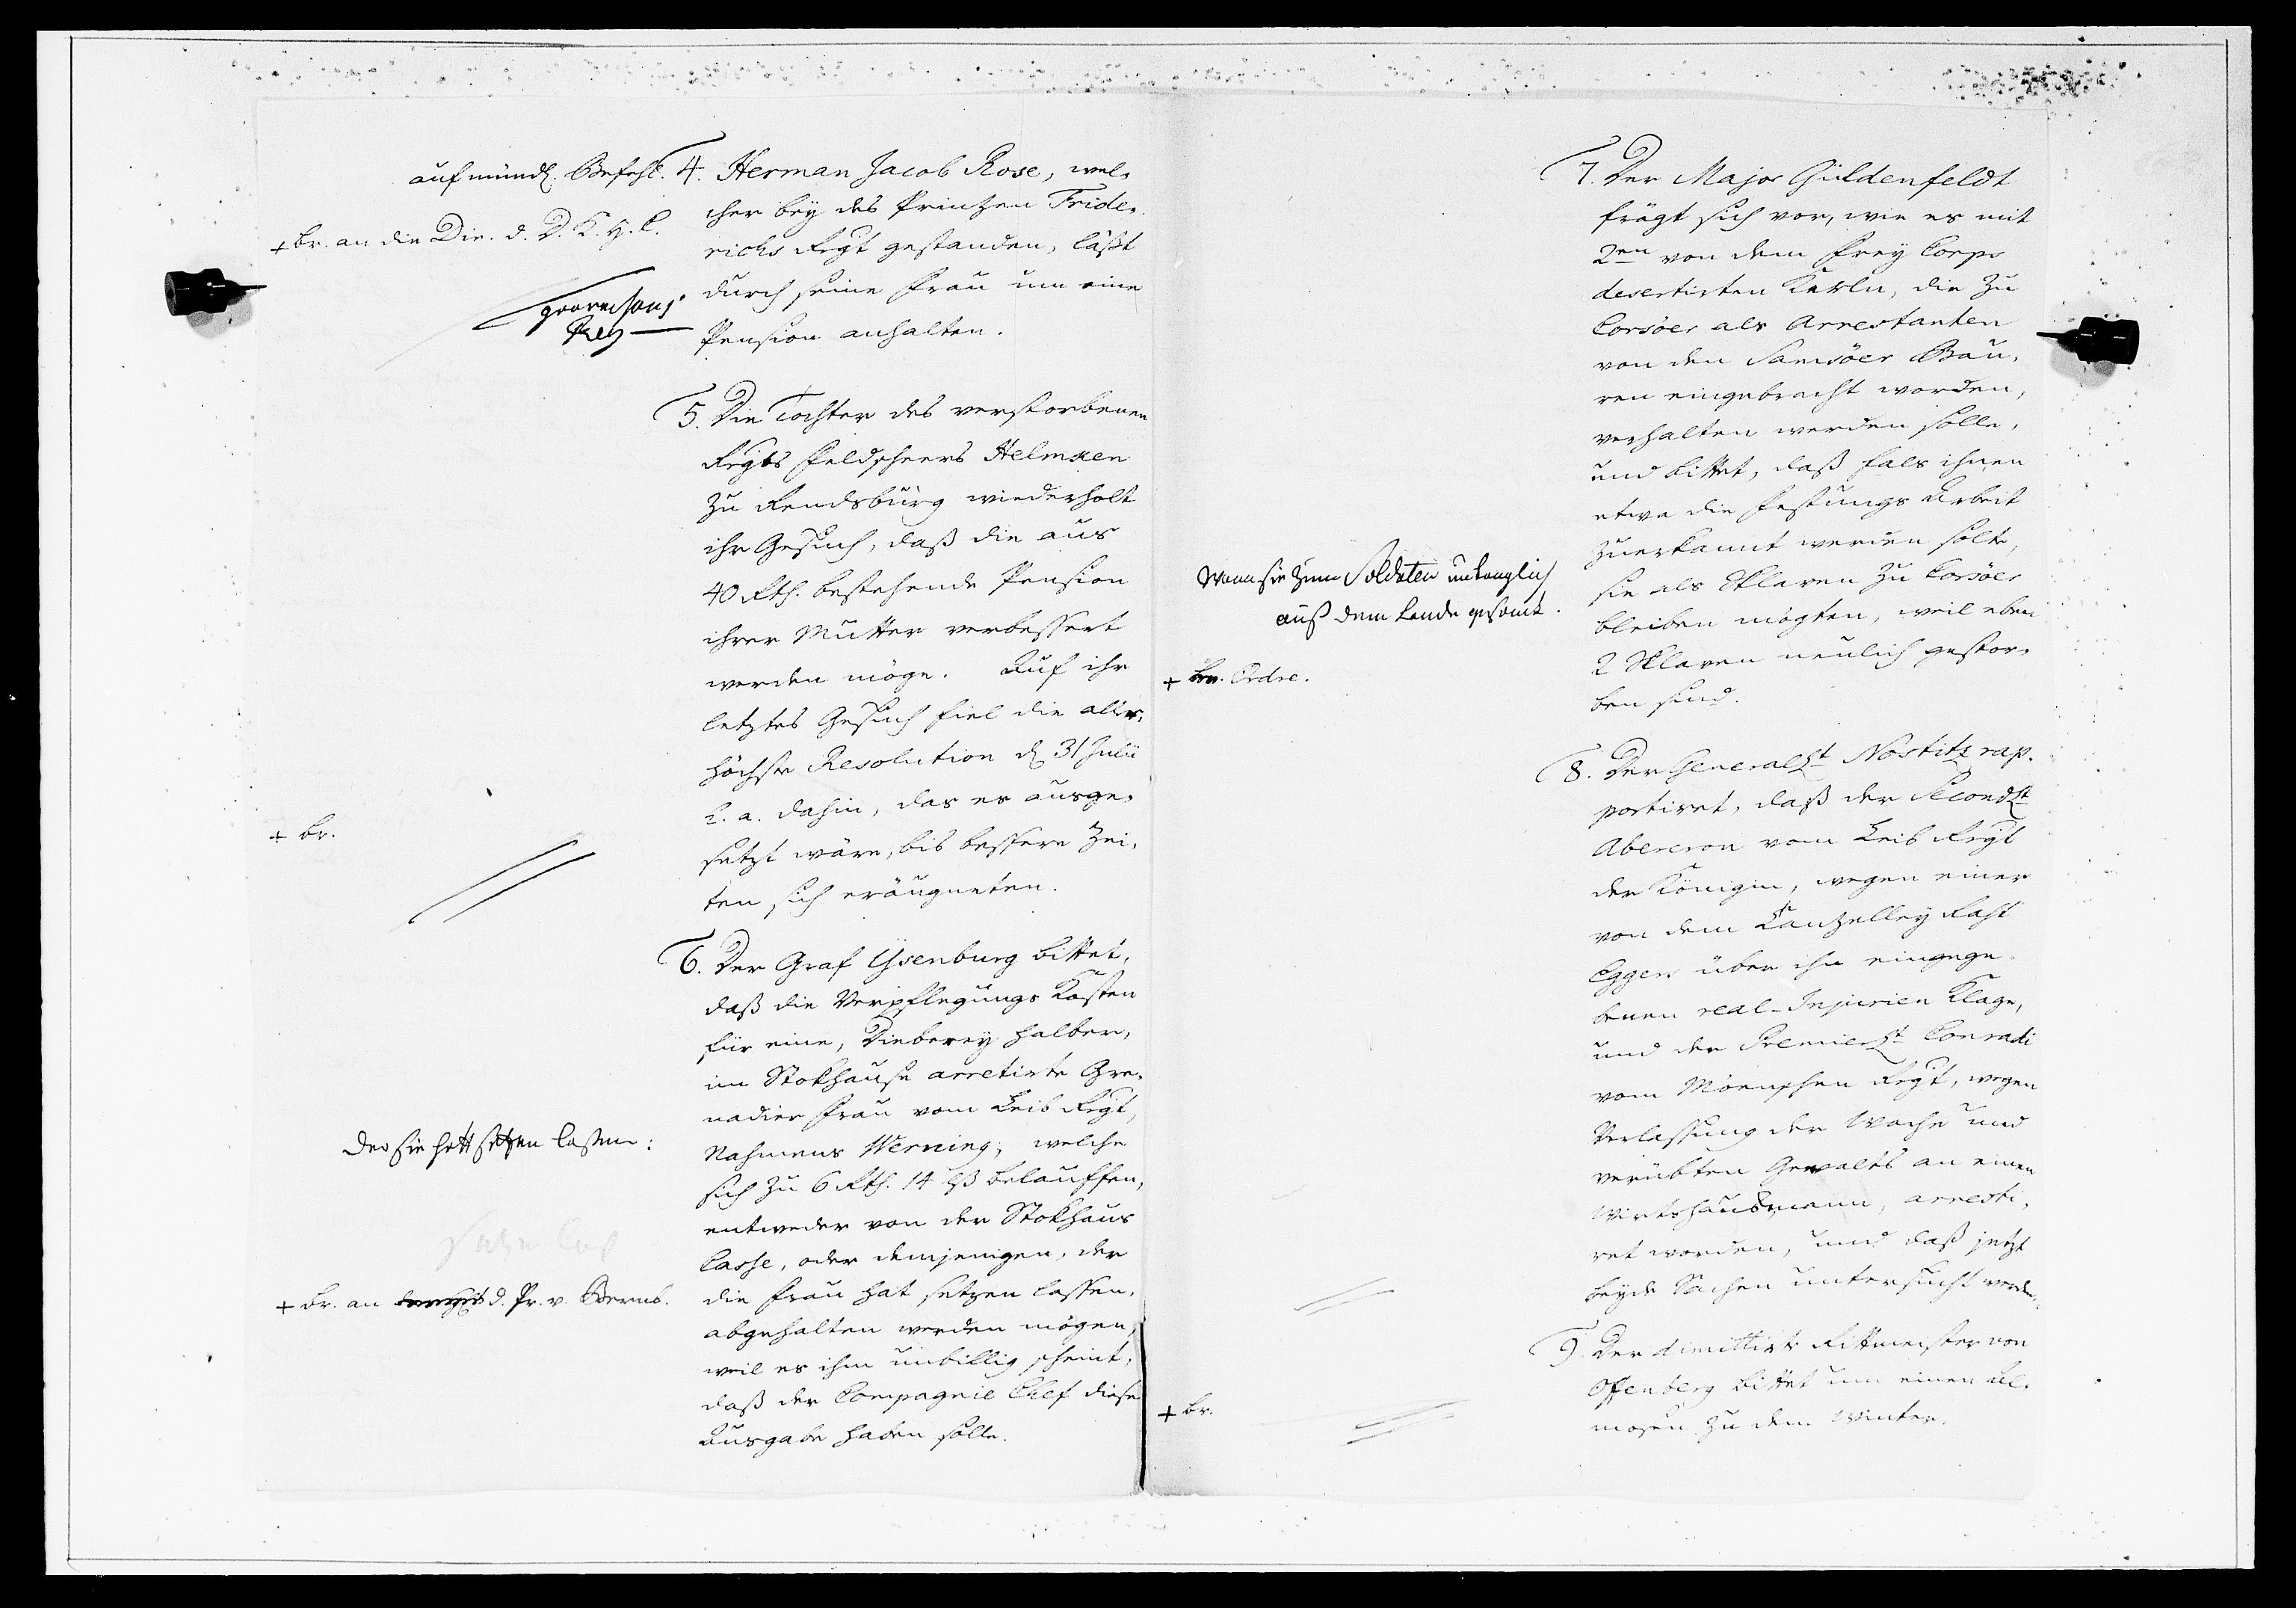 auf mündl. Befehl.
+ br. an die Dir. d. D. K. H. C.
Guarnisons
Reg
4. Herman Jacob Rose, wel-
cher bey des Printzen Fride-
richs Regt gestanden, läßt
durch seine Frau um eine
Pension anhalten.
5. Die Tochter des verstorbenen
Regts Feldscheers Helmsen
zu Rendsburg wiederholt
ihr Gesuch, daß die aus
40 Rth. bestehende Pension
ihrer Mutter verbessert
werden möge. Auf ihr
letztes Gesuch fiel die aller-
höchste Resolution d 31 Julii
h. a. dahin, das es ausge-
setzt wäre, bis bessere Zei-
ten sich eräugneten.
+ br.
6. Der Graf Ysenburg bittet,
daß die Verpflegungs Kosten
für eine, Dieberey halber,
im Stokhause arretirte Gre-
nadier Frau vom Leib Regt,
Nahmens Werning, welche
sich zu 6 Rth. 14 lß belauffen,
entweder von der Stokhaus
Casse, oder demjenigen, der
die Frau hat setzen lassen,
abgehalten werden mögen,
weil es ihm unbillig scheint,
daß der Compagnie Chef diese
Ausgabe haben solle.
der sie hatt setzen laßen:
+ br. an d. Pr. v. Bernb.
7. Der Major Güldenfeldt
frägt sich vor, wie es mit
2en von dem Frey Corps
desertirten Kerln, die zu
Corsöer als Arrestanten
von den Samsöer Bau-
ren eingebracht worden,
verhalten werden solle,
und bittet, daß fals ihnen
etwa die Festungs Arbeit
zuerkannt werden solte,
sie als Sklaven zu Corsöer
bleiben mögten, weil eben
2 Sklaven neulich gestor-
ben sind.
Wann sie zum Soldaten untauglich
auß dem Lande gesandt.
+ br. Ordre.
8. Der Generallt Nostitz rap-
portiret, daß der Secondlt
Abercron vom Leib Regt
der Königin, wegen einer
von dem Cantzelley Raht
Eggers über ihn eingege-
benen real-Injurien Klage,
und der Premierlt Conradi
vom Möenschen Regt, wegen
Verlassung der Wache und
verübten Gewalts an einen
Wirtshausmann, arresti-
ret worden, und daß jetzt
beyde Sachen untersucht werden.
9. Der dimittirte Rittmeister von
Offenberg bittet um einen Al-
mosen zu dem Winter.
+ br.